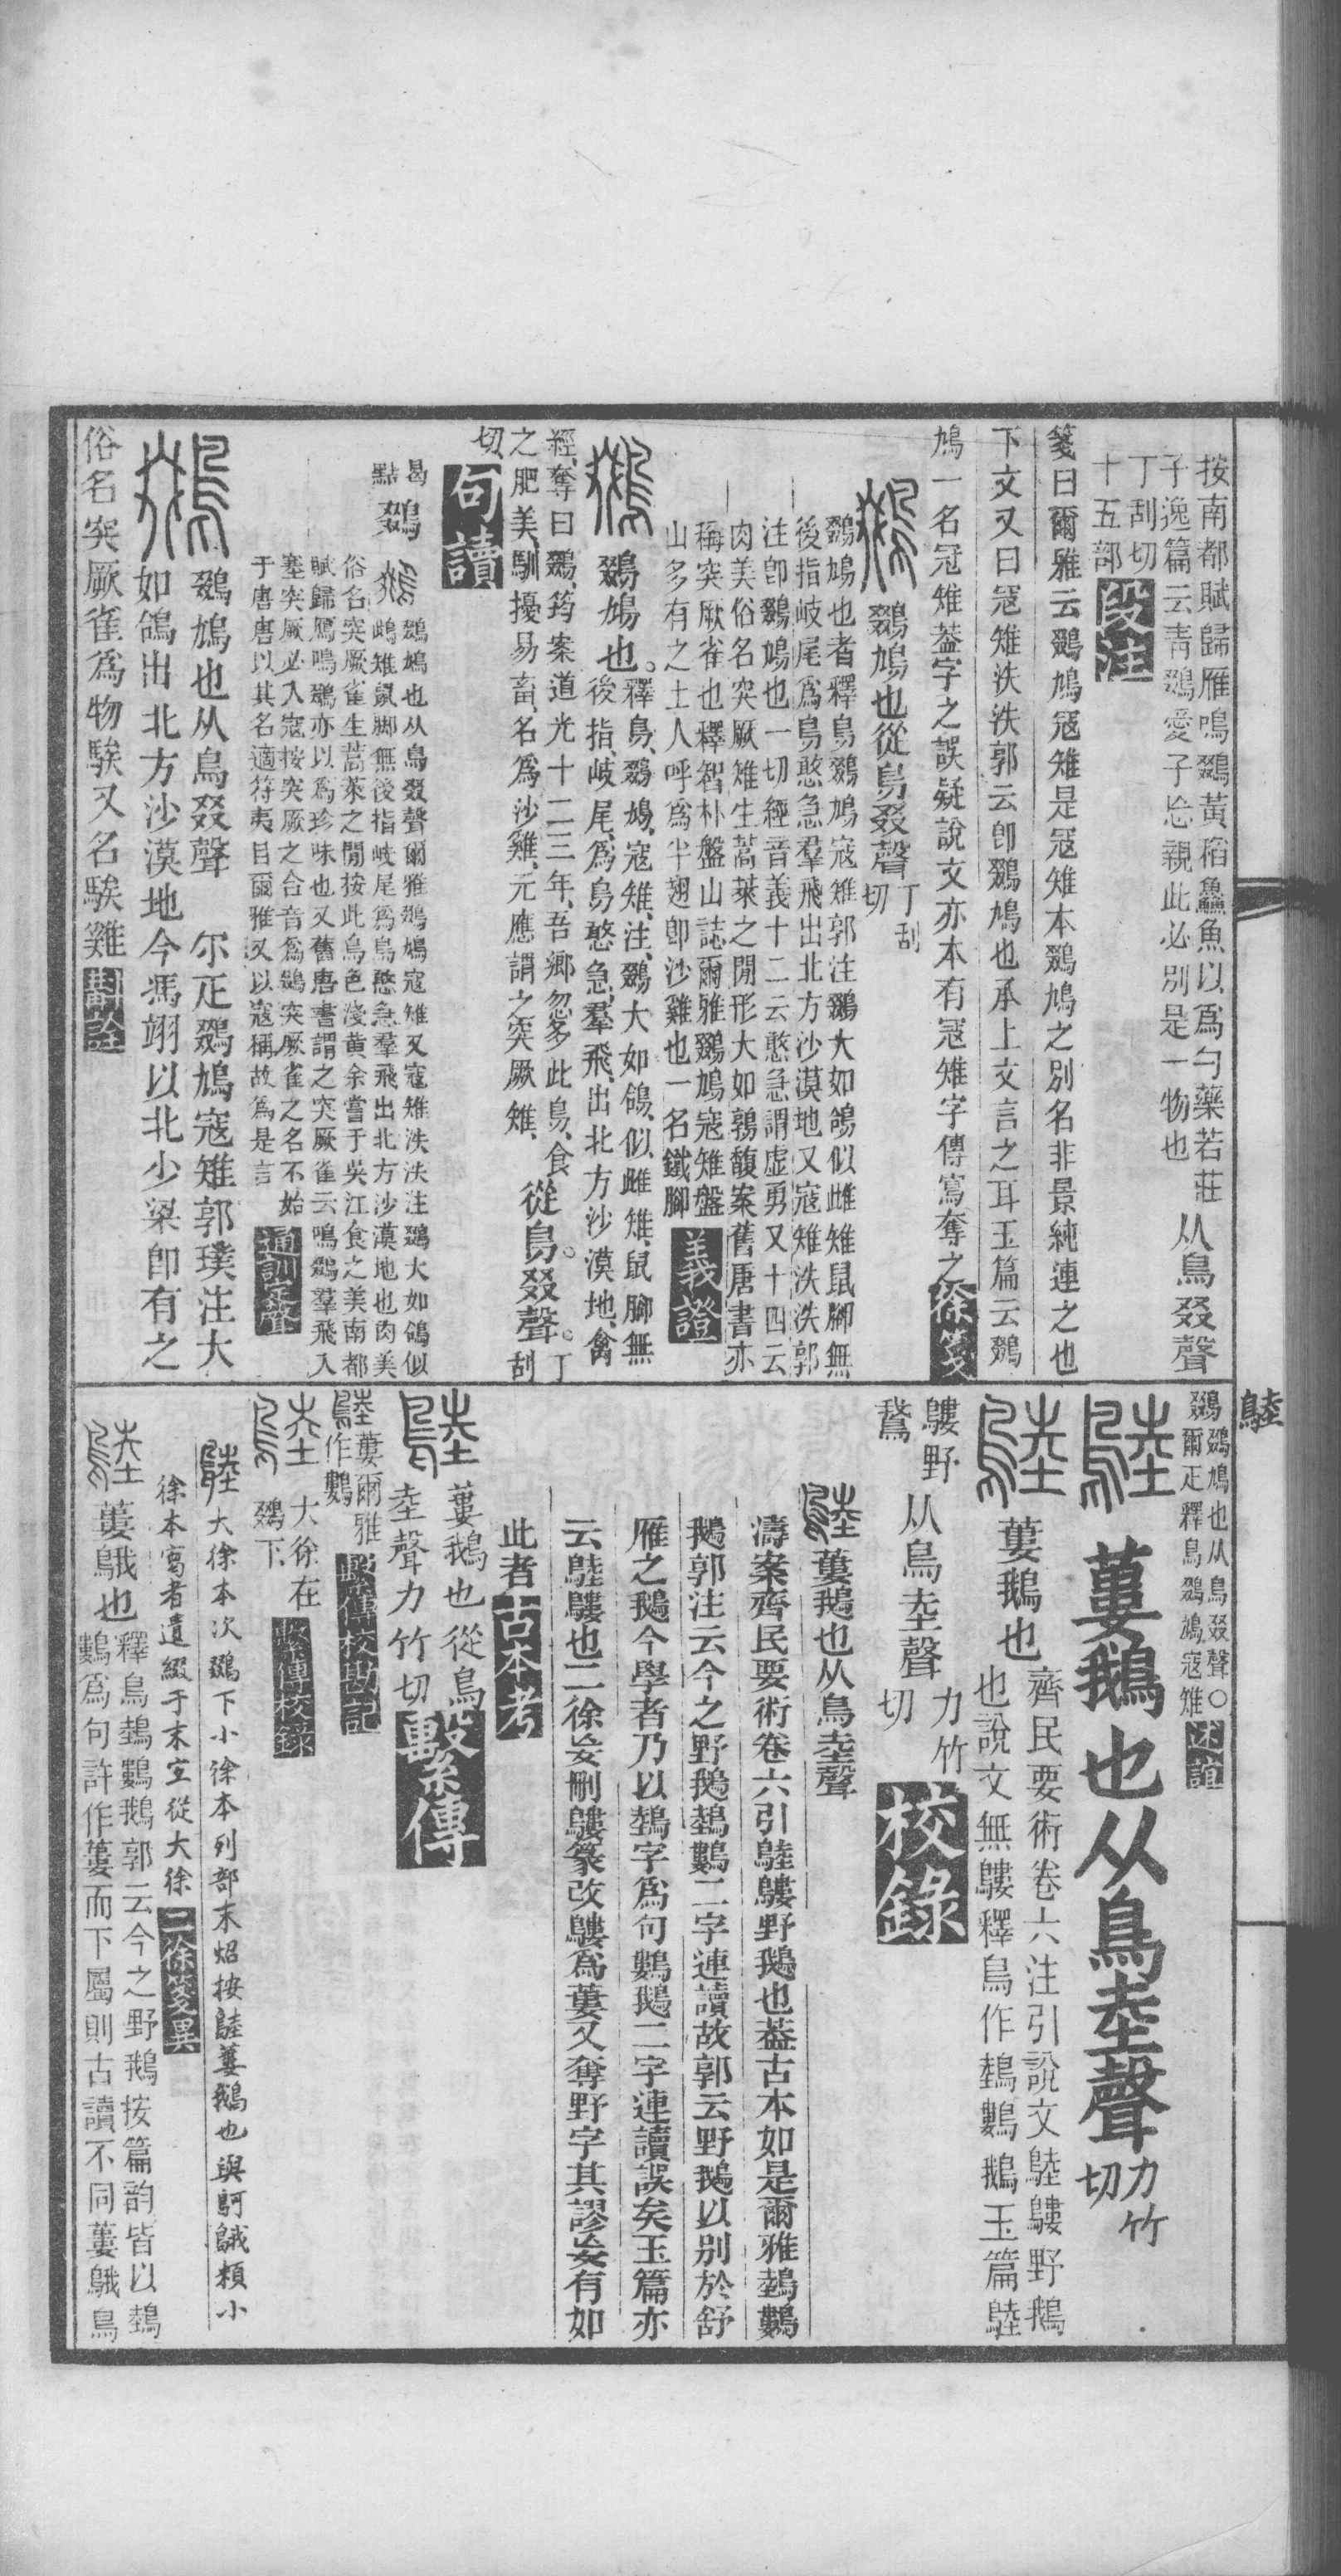 按南都賦歸雁鳴鵽黃稻鱻魚以爲勺藥若莊
子逸篇云靑鵽愛子忘親此必別是一物也
从鳥叕聲
丁刮切
十五部
段注
箋曰爾雅云鵽鳩寇雉是寇雉本鵽鳩之別名非景純連之也
下文又曰寇雉泆泆郭云卽鵽鳩也承上文言之耳玉篇云鵽
鳩一名冠雉葢字之誤疑說文亦本有寇雉字傳寫奪之
徐箋
鵽鳩也從鳥叕聲
丁刮
切
鵽鳩也者釋鳥鵽鳩寇雉郭注鵽大如鴿似雌雉鼠腳無
後指岐尾爲鳥憨急羣飛出北方沙漠地又寇雉泆泆郭
注卽鵽鳩也一切經音義十二云憨急謂虛勇又十四云
肉美俗名突厥雉生蒿萊之閒形大如鶉馥案舊唐書亦
稱突厥雀也釋智朴盤山誌爾雅鵽鳩寇雉盤
山多有之土人呼爲半翅卽沙雞也一名鐵腳
義證
鵽鳩也。
釋鳥、鵽鳩、寇雉、注、鵽大如鴿、似雌雉、鼠腳、無
後指、岐尾、爲鳥憨急、羣飛、出北方沙漠地、禽
經、奪曰鵽、筠案道光十二三年、吾鄉忽多此鳥、食
之肥美、馴擾易畜、名爲沙雞、元應謂之突厥雉、
從鳥。叕聲。
丁
刮
切
句讀
曷
點
鵽
鵽鳩也从鳥叕聲爾雅鵽鳩寇雉又寇雉泆泆注鵽大如鴿似
雌雉鼠腳無後指岐尾爲鳥憨急羣飛出北方沙漠地也肉美
俗名突厥雀生蒿萊之閒按此鳥色淺黃余嘗于吳江食之美南都
賦歸鴈鳴鵽亦以爲珍味也又舊唐書謂之突厥雀云鳴鵽羣飛入
塞突厥必入寇按突厥之合音爲鵽突厥雀之名不始
于唐唐以其名適符夷目爾雅又以寇稱故爲是言
通訓定聲
鵽鳩也从鳥叕聲 尒疋鵽鳩寇雉郭璞注大
如鴿出北方沙漠地今馮翊以北少梁卽有之
俗名突厥雀爲物騃又名騃雞
斠詮
鵽鵽鳩也从鳥叕聲〇
爾疋釋鳥鵽鳩寇雉
述誼
鯥
蔞鵝也从鳥坴聲
力竹
切
蔞鵝也
齊民要術卷六注引說文鵱鷜野鵝
也說文無鷜釋鳥作鵱鷜鵝玉篇鵱
鷜野
鵞
从鳥坴聲
力竹
切
校錄
蔞鵝也从鳥坴聲
濤案齊民要術卷六引鵱鷜野鵝也葢古本如是爾雅鵱鷜
鵝郭注云今之野鵝鵱鷜二字連讀故郭云野鵝以別於舒
雁之鵝今學者乃以鵱字爲句鷜鵝二字連讀誤矣玉篇亦
云鵱鷜也二徐妄刪鷜篆改鷜爲蔞又奪野字其謬妄有如
此者
古本考
蔞鵝也從鳥
坴聲力竹切
繫傳
鵱
蔞爾雅
作鷜
繫傳校勘記
大徐在
鵽下
繫傳校錄
大徐本次鵽下小徐本列部末炤按鵱蔞鵝也與鴚䳘類小
徐本寫者遺綴于末宐從大徐
二徐箋異
蔞䳘也
釋鳥鵱鷜鵝郭云今之野鵝按篇韵皆以鵱
鷜爲句許作蔞而下屬則古讀不同蔞䳘鳥